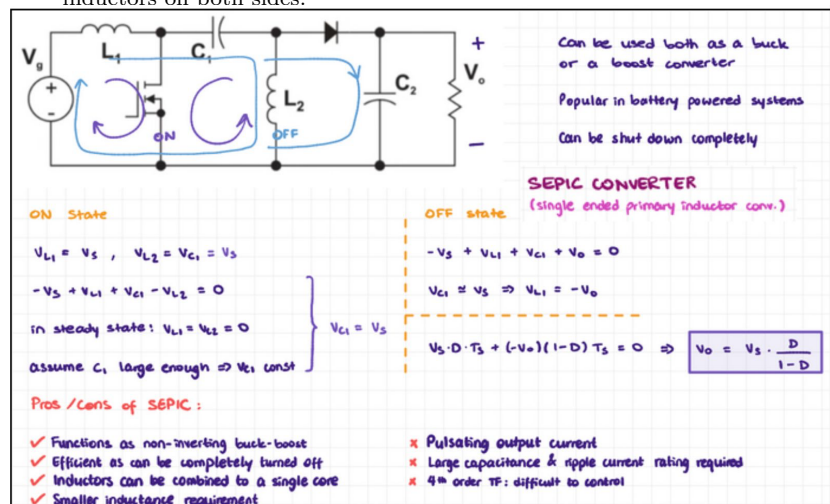 inductors on both sides.
V_g
L_1
C_1
L_2
C_2
+
V_o
−
+
-
ON
OFF
Can be used both as a buck
or a boost converter
Popular in battery powered systems
Can be shut down completely
SEPIC CONVERTER
(single ended primary inductor conv.)
ON State
V_L1 = V_s , V_L2 = V_C1 = V_s
-V_s + V_L1 + V_C1 - V_L2 = 0
in steady state: V_L1 = V_L2 = 0
assume C_1 large enough ⇒ V_C1 const
V_C1 = V_s
OFF state
-V_s + V_L1 + V_C1 + V_o = 0
V_C1 ≅ V_s ⇒ V_L1 = -V_o
V_s·D·T_s + (-V_o)(1-D) T_s = 0 ⇒ V_o = V_s · D / (1-D)
Pros /Cons of SEPIC :
✓ Functions as non-inverting buck-boost
✓ Efficient as can be completely turned off
✓ Inductors can be combined to a single core
✓ Smaller inductance requirement
x Pulsating output current
x Large capacitance & ripple current rating required
x 4th order TF: difficult to control